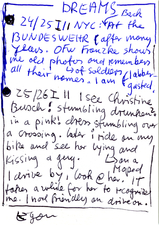 DREAMS
Back
24/25 III NYC: At the
BUNDESWEHR (after many
years. Ofw Franzke shows
me old photos and remembers
all their names. I am flabber-
of soldiers
gasted
25/26 III I see Christine
Busch: stumbling drunken
in a pink dress stumbling over
a crossing. Later I ride on my
bike and see her lying and
kissing a guy.
on a
Moped
I drive by, look @ her. IT
takes a while for her to recognize
me. I nod friendly an drive on.